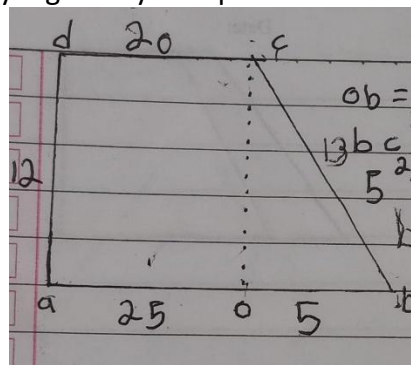 d 20 c
ob =
13 b c
12
5 2
a 25 o 5 b